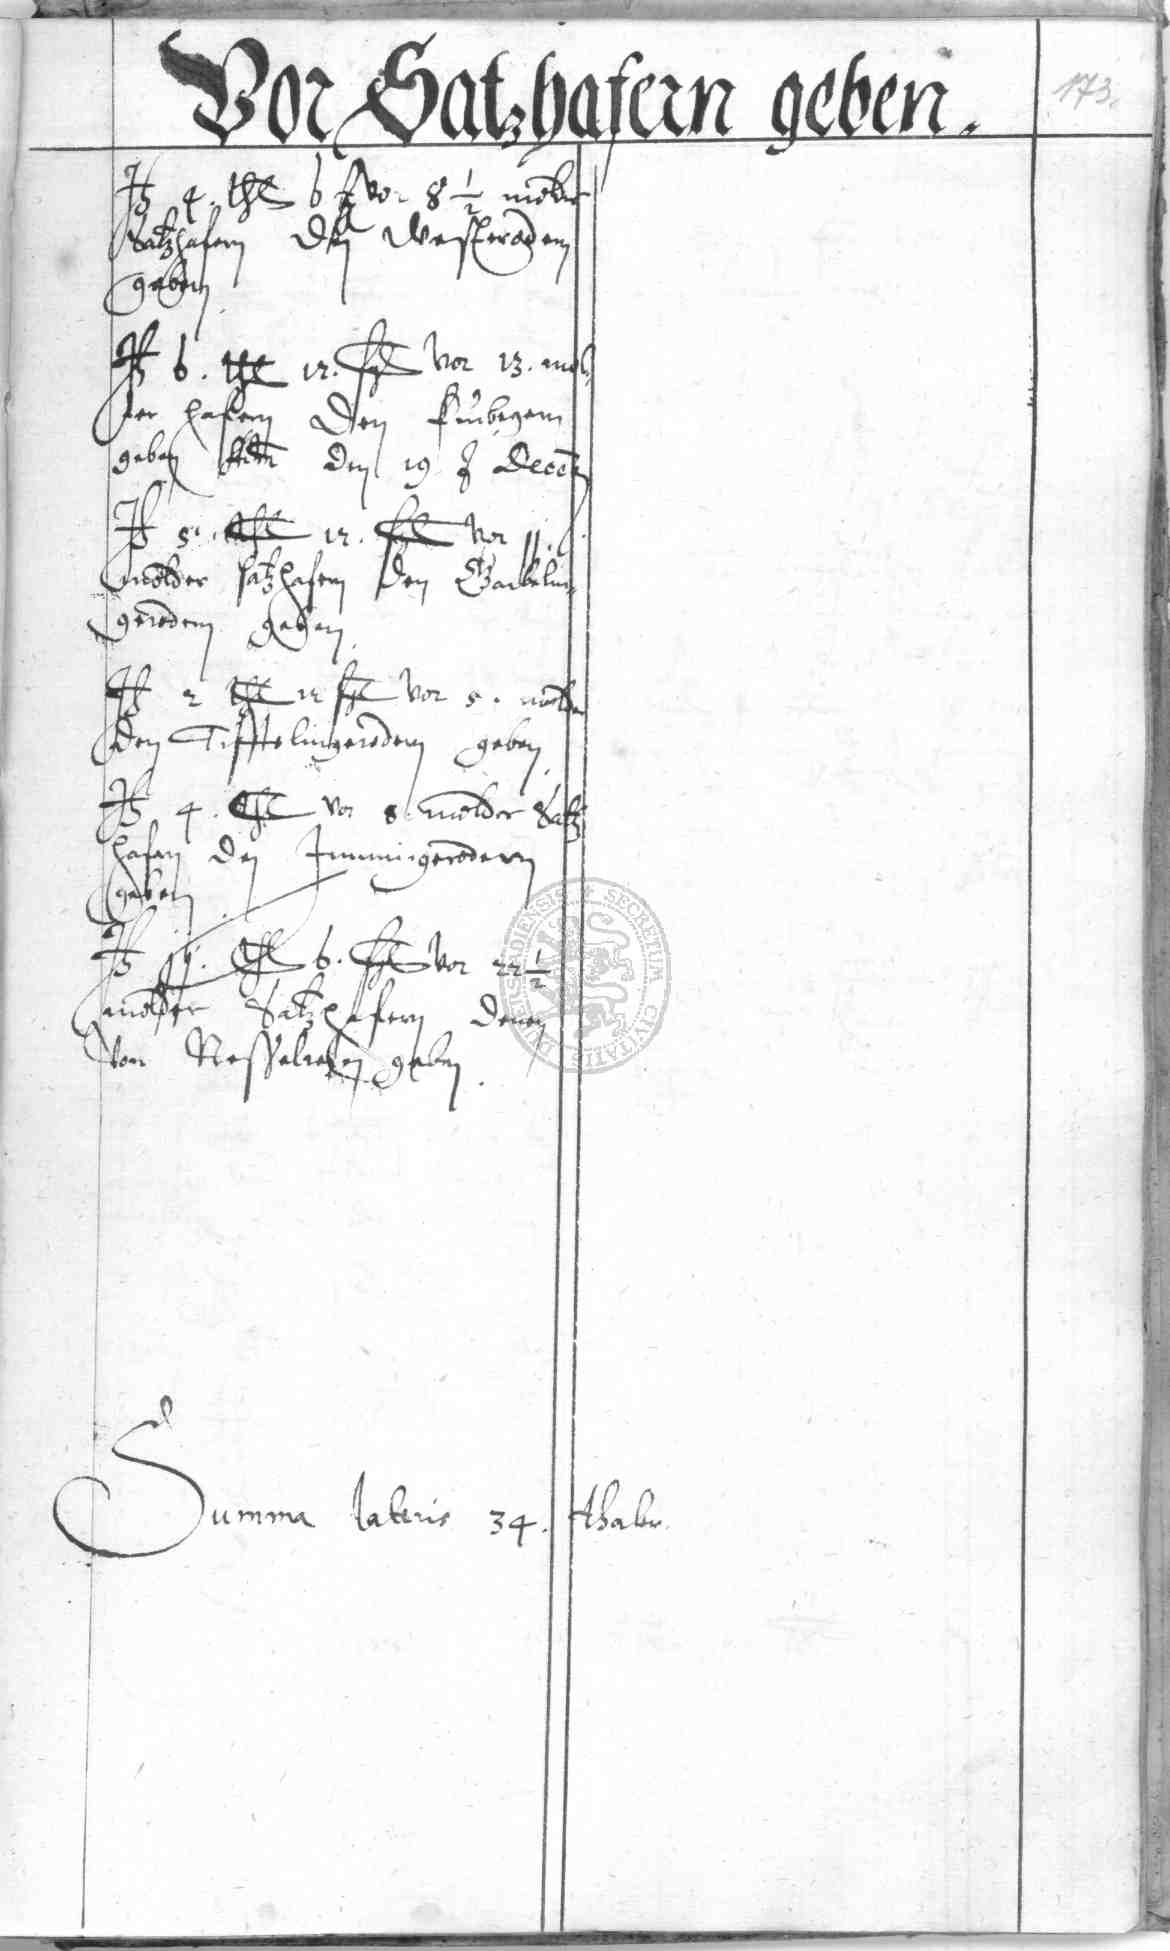 Vor Satzhafern geben.
173.
It 4. thl 6 ß vor 8 1/2 molder
Satzhafern den Westerodern
geben
It 6. thl 12. ßl vor 13. mol
der hafern den
geben den 19 Decem
It 5. thl 12. ßl vor 11.
molder satzhafern den
gerodern geben.
It 2 thl 12 ßl vor 5. molder
den Tifftelingerodern geben.
It 4. thl vor 8. molder Satz
hafern den Immingerodern
geben.
It 11. thl 6. ßl vor 22 1/2
molder Satzhafern denen
von Nesselreden geben.
Summa lateris 34. thaler.
SECRETUM CIVITATIS DUDERSTADIENSIS